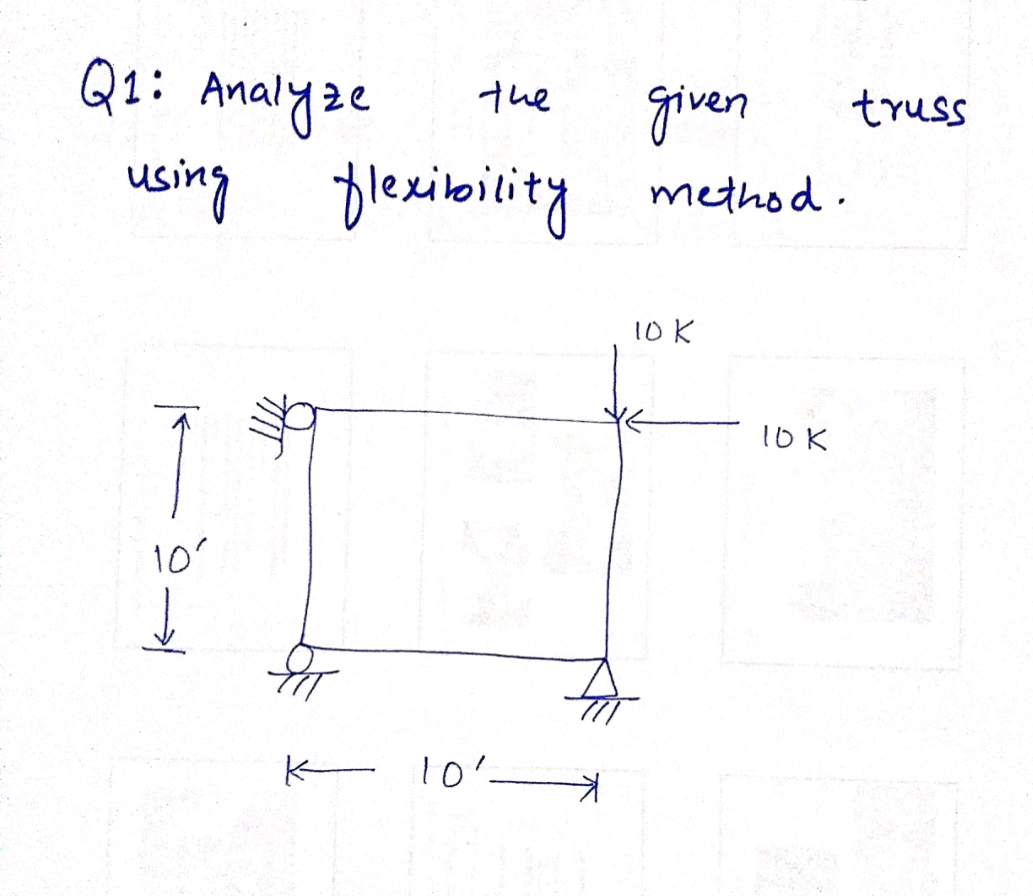 Q1: Analyze the given truss
using flexibility method.
10 K
10 K
10'
10'